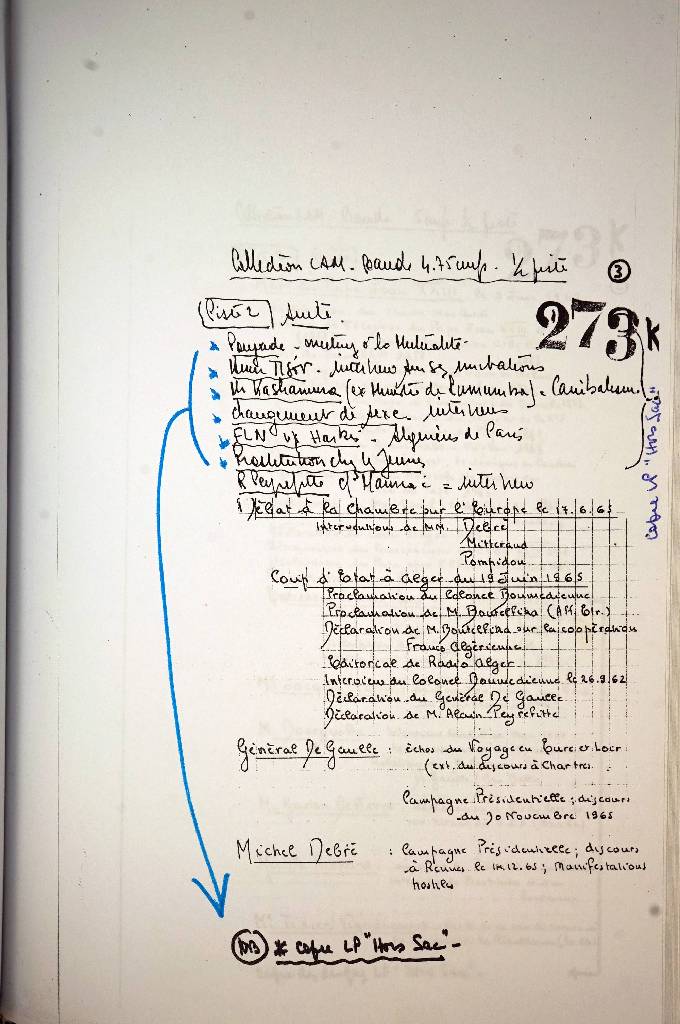 Collection CAM. Bande 4.75 cm/s. ½ piste
3
273 K
(Piste 2) Suite.
Poujade - meeting à la Mutualité -
interview sur ses
M Kashamura (ex Ministre de Lumumba) = Canibalisme
changement de sexe - interviews
FLN Harkis - Algériens de Paris
Prostitution chez les Jeunes
R Peyrefitte c/s Mauriac = interview
Copie LP "Hors Sac"
Débat à la Chambre sur l'Europe le 17.6.65
Interventions de MM. Debré
Mitterand
Pompidou
Coup d'Etat à Alger du 19 Juin 1965
Proclamation du Colonel Boumedienne
Proclamation de M. Bouteflika (Aff. Etr.)
Déclaration de M. Bouteflika sur la coopération
Franco Algérienne
Editorial de Radio Alger
Interview du Colonel Boumedienne le 26.9.62
Déclaration du Général De Gaulle
Déclaration de M. Alain Peyrefitte
Général De Gaulle : échos du Voyage en Eure et Loir
(ext. du discours à Chartres
Campagne Présidentielle ; discours
du 30 Novembre 1965
Michel Debré : Campagne Présidentielle ; discours
à Rennes le 12.65 ; Manifestations
hostiles
NB * Copie LP "Hors Sac" -